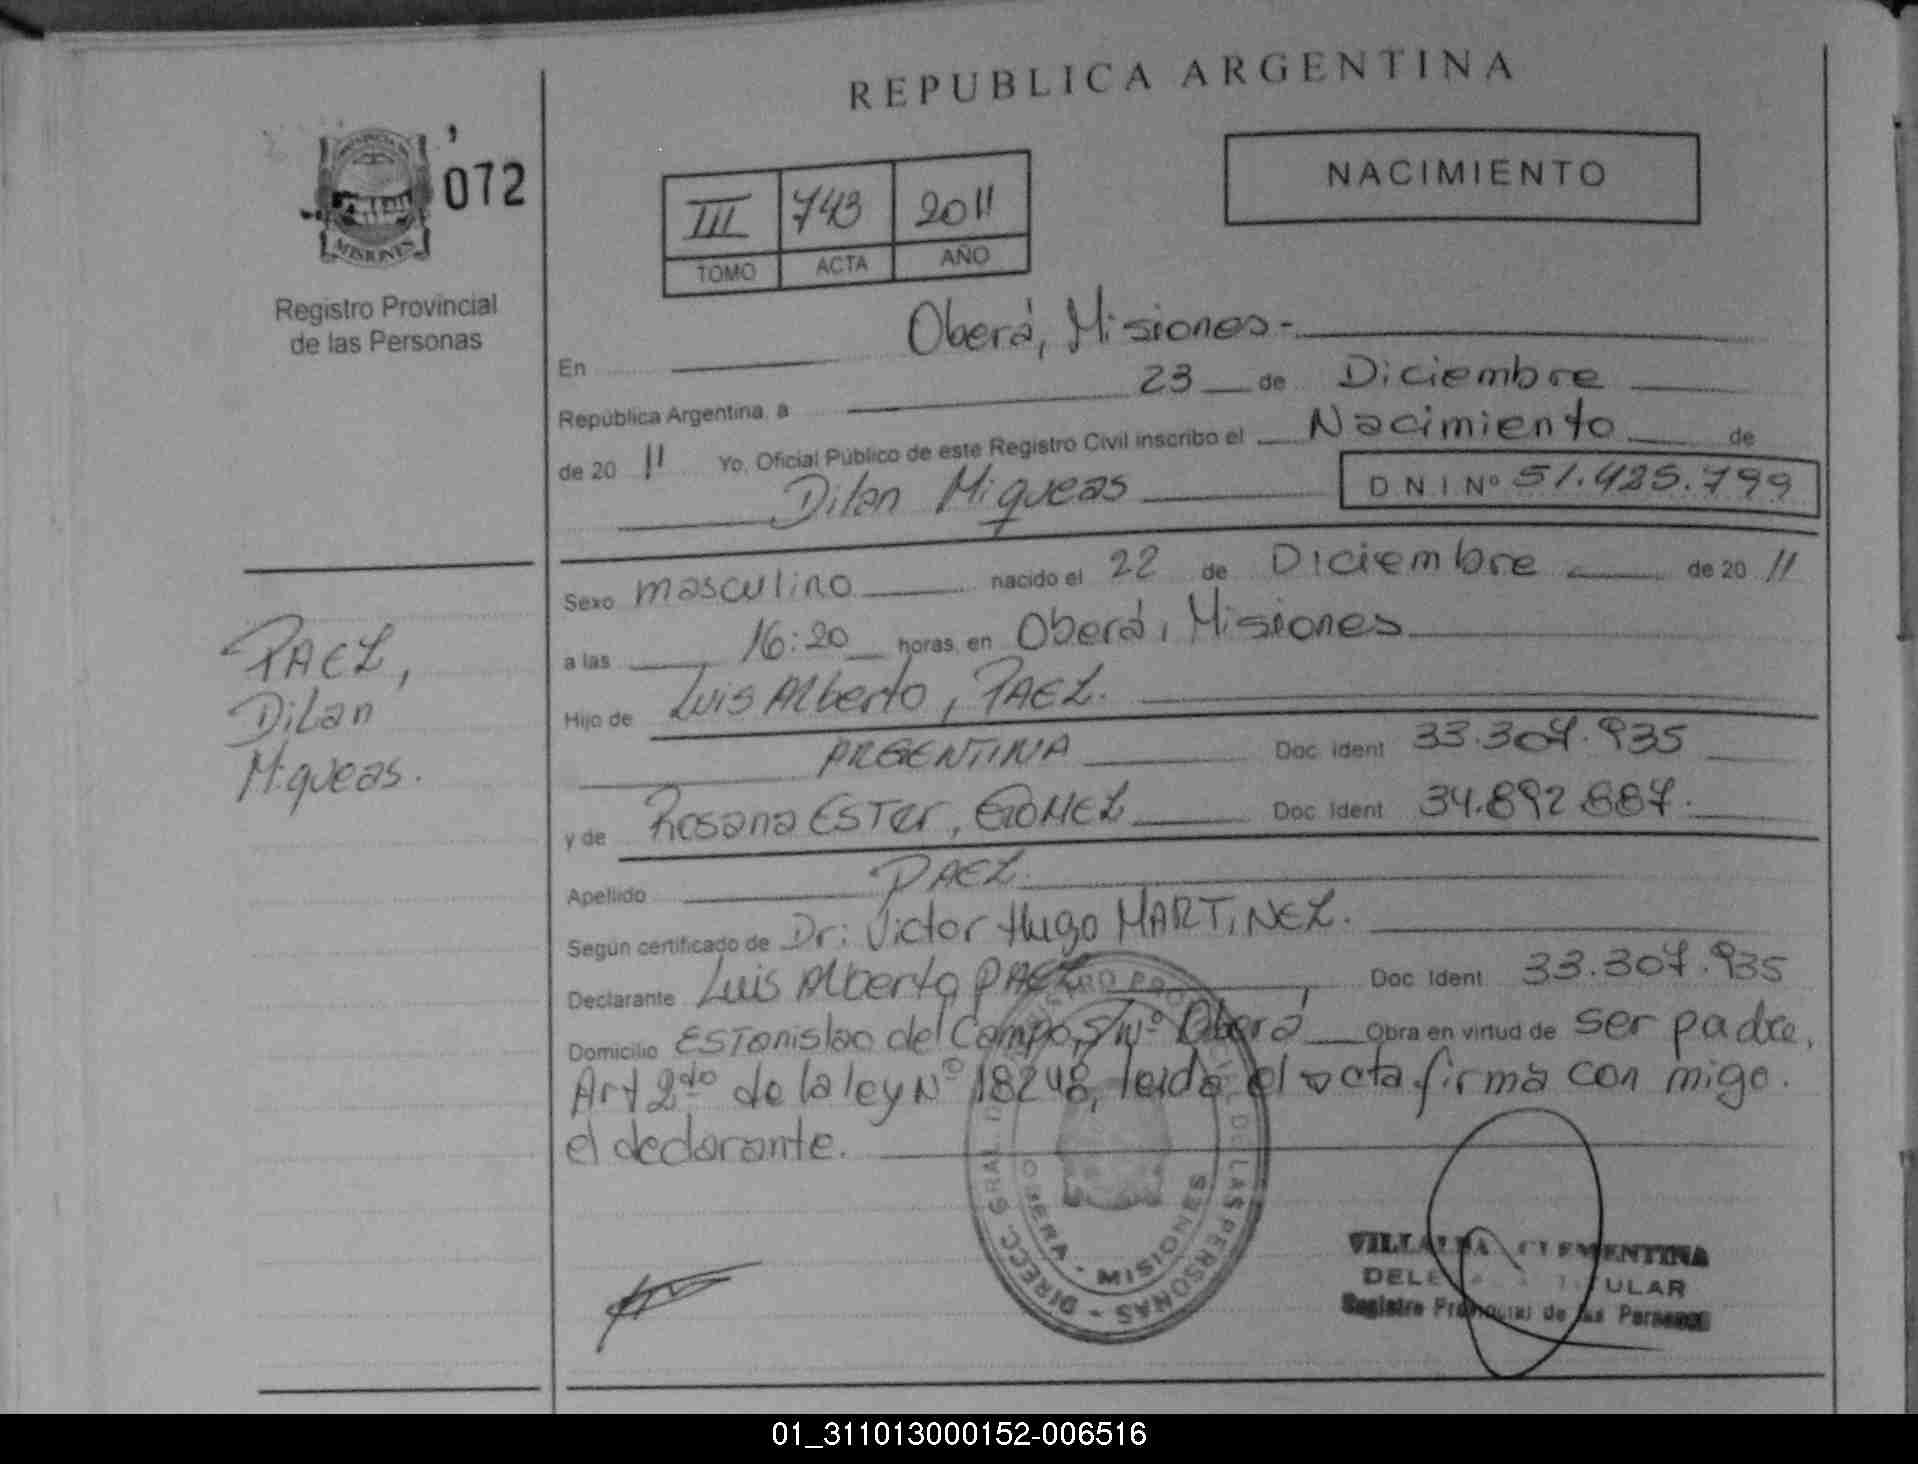 REPUBLICA ARGENTINA
072
MISIONES
Registro Provincial
de las Personas
III 743 2011
TOMO ACTA AÑO
NACIMIENTO
En Oberá, Misiones.-
República Argentina, a 23 de Diciembre
de 20 11 Yo, Oficial Público de este Registro Civil inscribo el Nacimiento de
Dilan Miqueas D N I Nº 51.425.799
Sexo masculino nacido el 22 de Diciembre de 20 11
a las 16:20 horas, en Oberá, Misiones
Hijo de Luis Alberto, PAEZ.
ARGENTINA Doc. Ident 33.307.935
y de Rosana Ester, GOMEZ Doc. Ident 34.892.887.
Apellido PAEZ.
Según certificado de Dr: Victor Hugo MARTINEZ.
Declarante Luis Alberto PAEZ Doc. Ident 33.307.935
Domicilio Estanislao del Campo, S/Nº Oberá Obra en virtud de ser padre,
Art 2do de la ley Nº 18248, leida el acta firma con migo.
el declarante.
PAEZ,
Dilan
Miqueas.
DIRECC. GRAL. DE REGISTRO PROVINCIAL DE LAS PERSONAS
OBERA - MISIONES
VILLALBA CLEMENTINA
DELEGADA TITULAR
Registro Provincial de las Personas
01_311013000152-006516